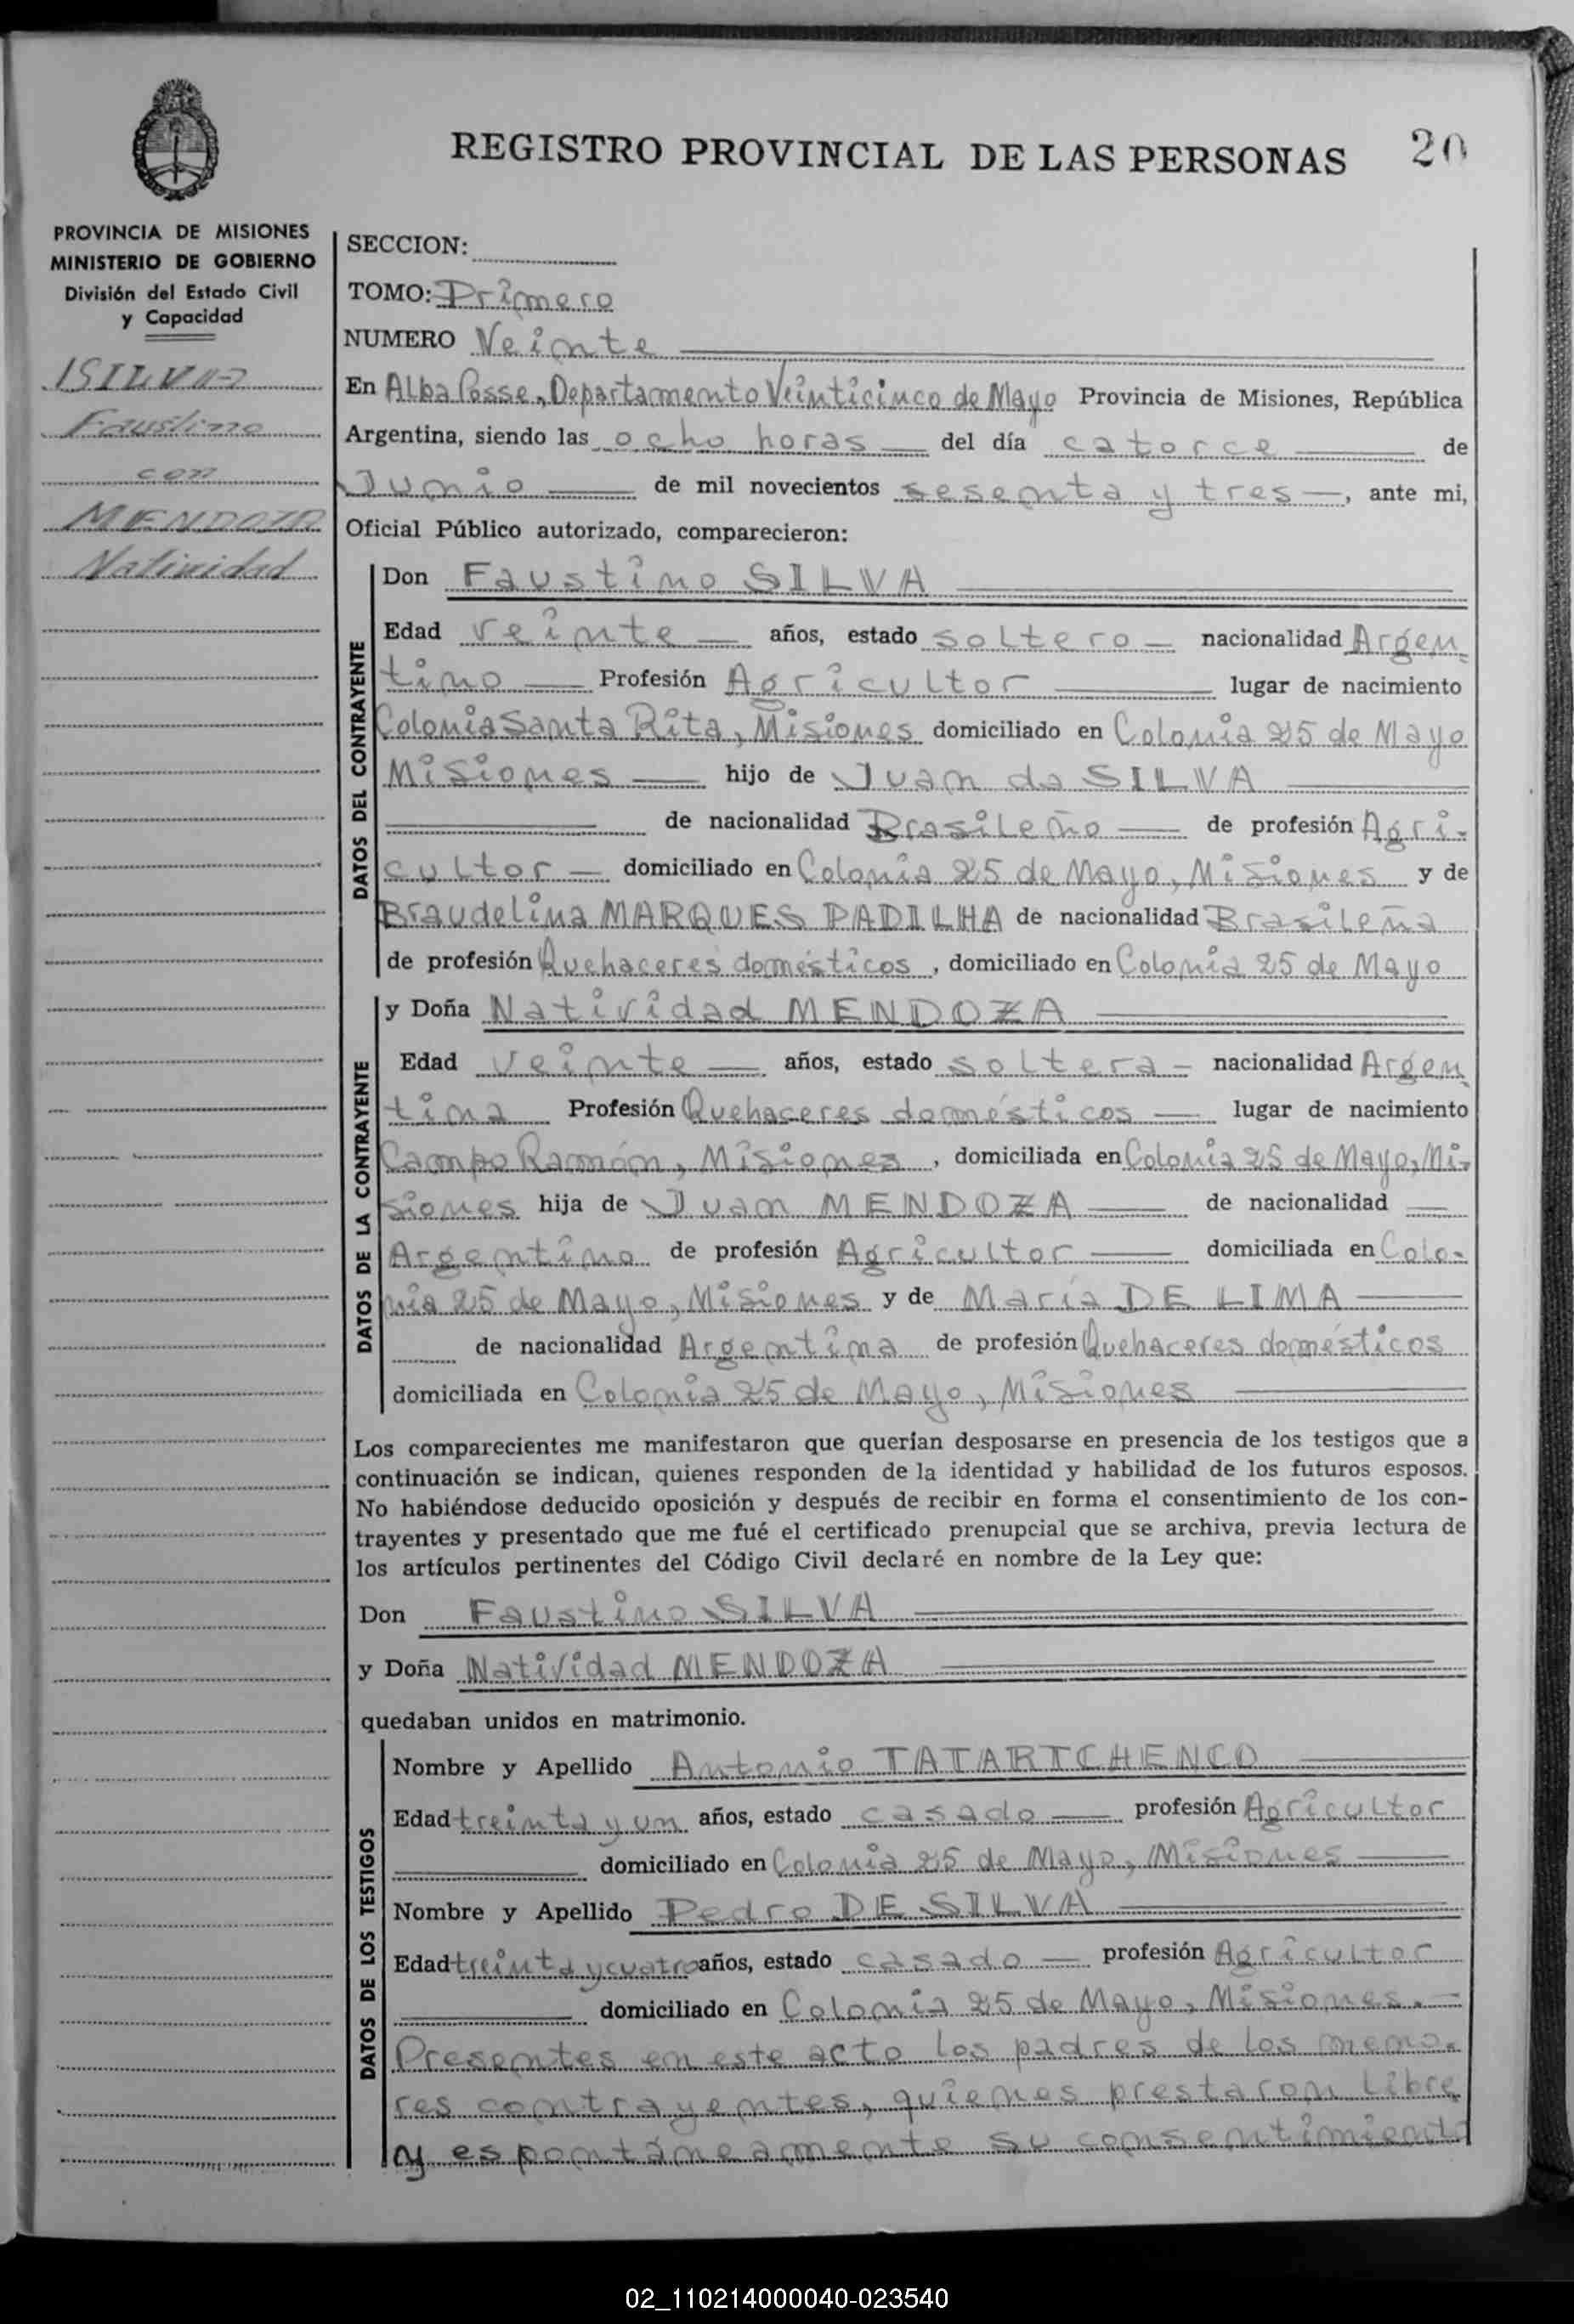 REGISTRO PROVINCIAL DE LAS PERSONAS 20
PROVINCIA DE MISIONES
MINISTERIO DE GOBIERNO
División del Estado Civil
y Capacidad
SILVA
Faustino
con
MENDOZA
Natividad
SECCION:
TOMO: Primero
NUMERO Veinte
En Alba Posse, Departamento Veinticinco de Mayo Provincia de Misiones, República
Argentina, siendo las ocho horas del día catorce de
Junio de mil novecientos sesenta y tres, ante mi,
Oficial Público autorizado, comparecieron:
DATOS DEL CONTRAYENTE
Don Faustino SILVA
Edad veinte años, estado soltero nacionalidad Argen
tino Profesión Agricultor lugar de nacimiento
Colonia Santa Rita, Misiones domiciliado en Colonia 25 de Mayo
Misiones hijo de Juan da SILVA
de nacionalidad Brasileño de profesión Agri-
cultor domiciliado en Colonia 25 de Mayo, Misiones y de
Braudelina MARQUES PADILHA de nacionalidad Brasileña
de profesión Quehaceres domésticos, domiciliado en Colonia 25 de Mayo
DATOS DE LA CONTRAYENTE
y Doña Natividad MENDOZA
Edad veinte años, estado soltera nacionalidad Argen
tina Profesión Quehaceres domésticos lugar de nacimiento
Campo Ramón, Misiones, domiciliada en Colonia 25 de Mayo, Mi-
siones hija de Juan MENDOZA de nacionalidad
Argentino de profesión Agricultor domiciliada en Colo-
nia 25 de Mayo, Misiones y de María DE LIMA
de nacionalidad Argentina de profesión Quehaceres domésticos
domiciliada en Colonia 25 de Mayo, Misiones
Los comparecientes me manifestaron que querían desposarse en presencia de los testigos que a
continuación se indican, quienes responden de la identidad y habilidad de los futuros esposos.
No habiéndose deducido oposición y después de recibir en forma el consentimiento de los con-
trayentes y presentado que me fué el certificado prenupcial que se archiva, previa lectura de
los artículos pertinentes del Código Civil declaré en nombre de la Ley que:
Don Faustino SILVA
y Doña Natividad MENDOZA
quedaban unidos en matrimonio.
DATOS DE LOS TESTIGOS
Nombre y Apellido Antonio TATARTCHENCO
Edad treinta y un años, estado casado profesión Agricultor
domiciliado en Colonia 25 de Mayo, Misiones
Nombre y Apellido Pedro DE SILVA
Edad treinta y cuatro años, estado casado profesión Agricultor
domiciliado en Colonia 25 de Mayo, Misiones.-
Presentes en este acto los padres de los meno-
res contrayentes, quienes prestaron libre
y espontáneamente su consentimiento
02_110214000040-023540